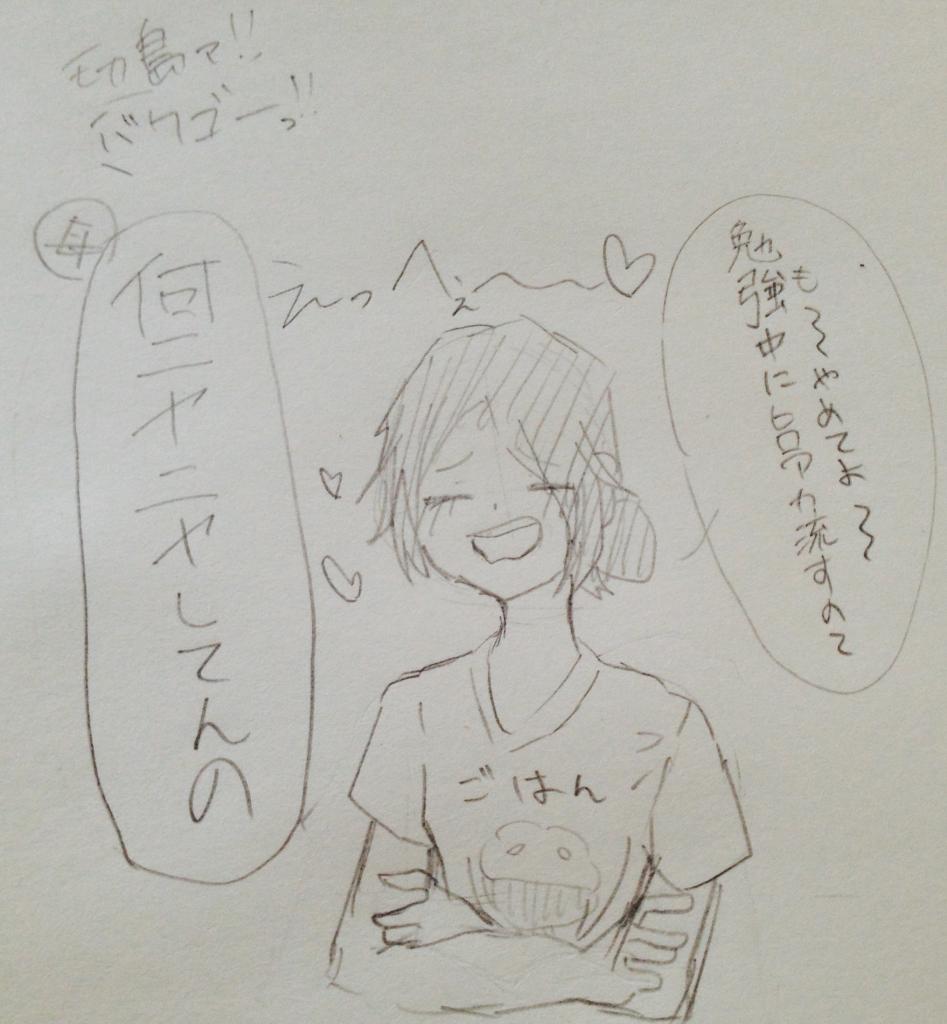 切島ァ!!
バクゴーっ!!
も〜やめてよ〜
勉強中に 流すの
えっへぇ〜♡
母
何ニヤニヤしてんの
ごはん